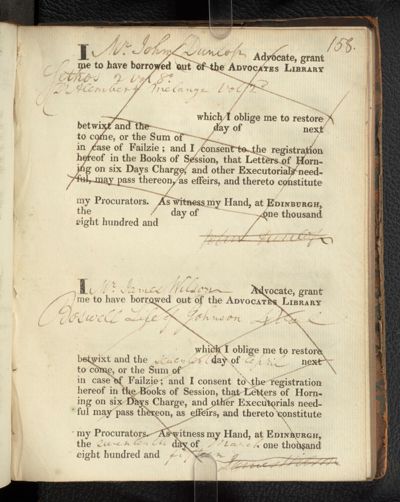 158.
I Mr John Dunlop Advocate, grant
me to have borrowed out of the ADVOCATES LIBRARY
Sethos 2 vol 8o
D'Alembert Melange Vol
which I oblige me to restore
betwixt and the day of next
to come, or the Sum of
in case of Failzie; and I consent to the registration
hereof in the Books of Session, that Letters of Horn-
ing on six Days Charge, and other Executorials need-
ful, may pass thereon, as effeirs, and thereto constitute
my Procurators. As witness my Hand, at EDINBURGH,
the day of one thousand
eight hundred and
John Dunlop
I Mr James Wilson Advocate, grant
me to have borrowed out of the ADVOCATES LIBRARY
Boswell Life of Johnson
which I oblige me to restore
betwixt and the day of April next
to come, or the Sum of
in case of Failzie; and I consent to the registration
hereof in the Books of Session, that Letters of Horn-
ing on six Days Charge, and other Executorials need-
ful may pass thereon, as effeirs, and thereto constitute
my Procurators. As witness my Hand, at EDINBURGH,
the day of March one thousand
eight hundred and fifteen
James Wilson